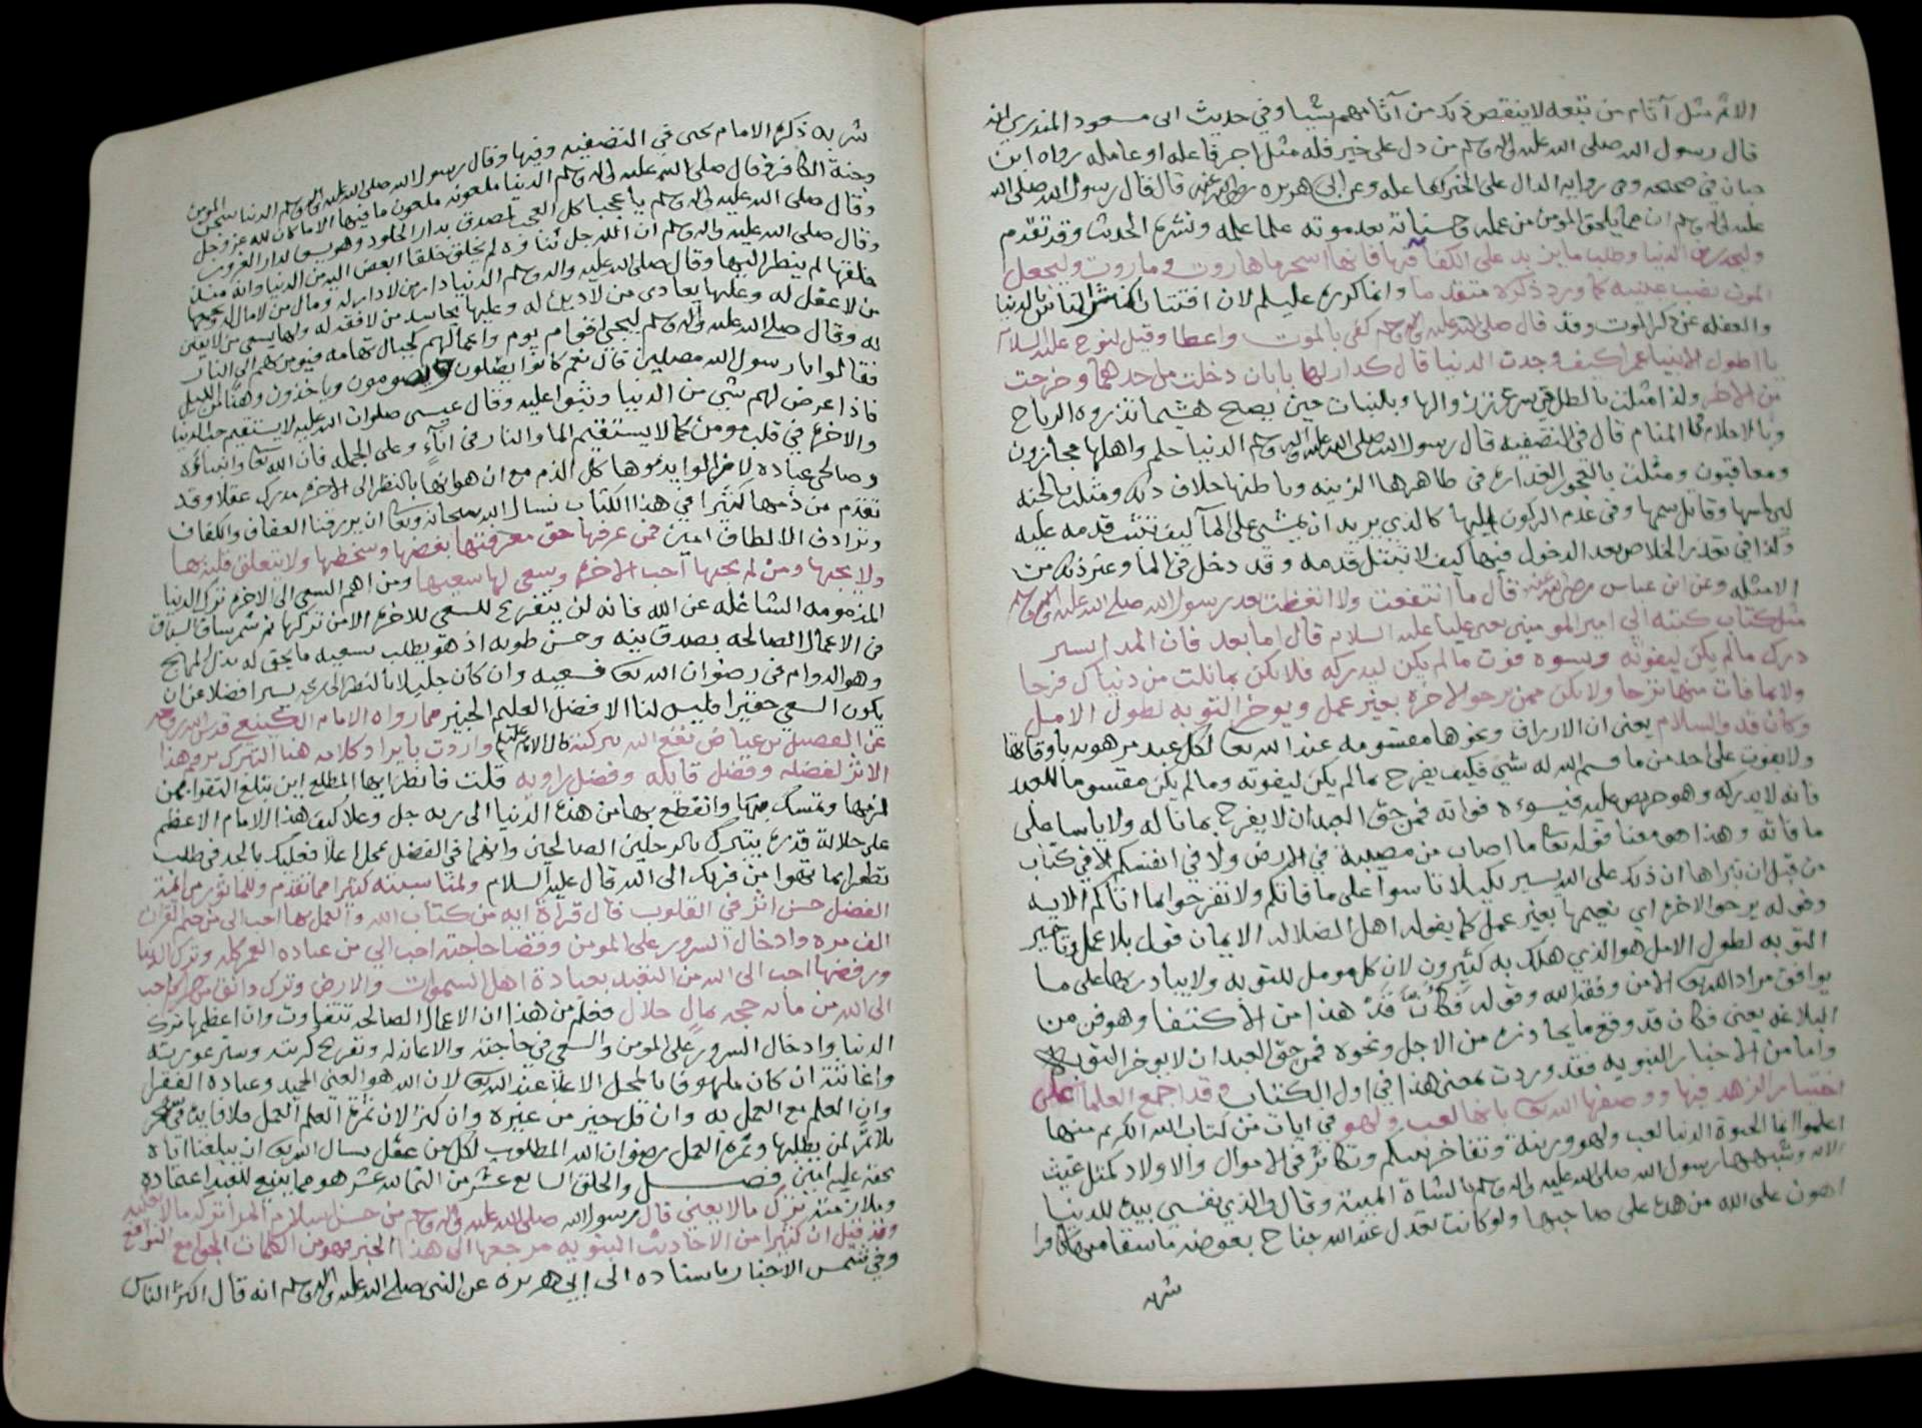 الاثم مثل آثام من تبعه لا ينقص ذلك من آثامهم شيا وفي حديث ابى مسعود البدري ان
قال رسول الله صلى الله عليه واله وسلم من دل على خير فله مثل اجر فاعله او عامله رواه ابن
حبان في صحيحه وفي روايه الدال على الخير كفاعله وعن ابى هريره رضي الله عنه قال قال رسول الله صلى الله
عليه واله وسلم ان مما يلحق المؤمن من عمله وحسناته بعد موته علما علمه ونشره الحديث وقد تقدم
وليحذر من الدنيا وطلب ما يزيد على الكفاف فيها فانها اسحر من هاروت وماروت وليجعل
الموت نصب عينيه كما ورد ذكره متقدما وانما كوره عليلم لان افتتان اكثر الناس بالدنيا
والغفله عن ذكر الموت وقد قال صلى الله عليه واله وسلم كفى بالموت واعظا وقيل لنوح عليه السلام
يا اطول الانبيا عمرا كيف وجدت الدنيا قال كدار لها بابان دخلت من احدهما وخرجت
من الاخر ولذا مثلت بالظل في سرعة زوالها وبالنبات حين يصبح هشيما تذروه الرياح
وبالاحلام في المنام قال في التصفيه قال رسول الله صلى الله عليه واله وسلم الدنيا حلم واهلها مجازون
ومعاقبون ومثلت بالعجوز الغداره في ظاهرها الزينه وباطنها خلاف ذلك ومثلت بالحيه
لين لمسها وقاتل سمها وفي عدم الركون اليها كالذي يريد ان يمشي على الما كيف تثبت قدمه عليه
وكذا في تعذر الخلاص بعد الدخول فيها كيف لا تبتل قدمه وقد دخل في الما وغير ذلك من
الامثله وعن ابن عباس رضي الله عنه قال ما انتفعت ولا اتعظت بعد رسول الله صلى الله عليه واله وسلم
مثل كتاب كتبه الي امير المومنين يعني عليا عليه السلام قال اما بعد فان المرا يسر
درك ما لم يكن ليفوته ويسوه فوت ما لم يكن ليدركه فلا تكن بما نلت من دنياك فرحا
ولا بما فات منها ترحا ولا تكن ممن يرجو الاخره بغير عمل ويوخر التوبه لطول الامل
وكأن قد والسلام يعني ان الارزاق ونحوها مقسومه عند الله تعا لكل عبد مرهونه باوقاتها
ولا يفوت على احد من ما قسم الله له شي فكيف يفرح بما لم يكن ليفوته وما لم يكن مقسوما للعبد
فانه لا يدركه وهو حريص عليه فيسوءه فواته فمن حق العبد ان لا يفرح بما ناله ولا ياسا على
ما فاته وهذا هو معنا قوله تعا ما اصاب من مصيبة في الارض ولا في انفسكم الا في كتاب
من قبل ان نبراها ان ذلك على الله يسير لكيلا تاسوا على ما فاتكم ولا تفرحوا بما اتاكم الايه
وقوله يرجو الاخره اي نعيمها بغير عمل كما يقوله اهل الضلاله الايمان قول بلا عمل وتاخير
التوبه لطول الامل هو الذي هلك به كثيرون لان كل مومل للتوبه ولا يبادرها على ما
يوافق مراد الله تعا الا من وفقه الله وقوله فَكَأَنْ قَدْ هذا من الاكتفا وهو فن من
البلاغه يعني فكان قد وقع ما يحاذره من الاجل ونحوه فمن حق العبد ان لا يوخر التوبه
واما من الاخبار النبويه فقد وردت بمعنى هذا في اول الكتاب وقد اجمع العلما على
اختيار الزهد فيها ووصفها الله تعا بانها لعب ولهو في ايات من كتاب الله الكريم منها
اعلموا انما الحيوة الدنيا لعب ولهو وزينة وتفاخر بينكم وتكاثر في الاموال والاولاد كمثل غيث
الايه وشبهها رسول الله صلى الله عليه واله وسلم بالشاة الميتة وقال والذي نفسي بيده للدنيا
اهون على الله من هذه على صاحبها ولو كانت تعدل عند الله جناح بعوضه ما سقا منها كافرا
شربه
شربه ذكره الامام يحيى في التصفيه وفيها وقال رسول الله صلى الله عليه واله وسلم الدنيا سجن المومن
وجنة الكافر وقال صلى الله عليه واله وسلم الدنيا ملعونه ملعون ما فيها الا ما كان لله عز وجل
وقال صلى الله عليه واله وسلم يا عجبا كل العجب لمصدق بدار الخلود وهو يسعا لدار الغرور
وقال صلى الله عليه واله وسلم ان الله جل ثناوه لم يخلق خلقا ابغض اليه من الدنيا وانه منذ
خلقها لم ينظر اليها وقال صلى الله عليه واله وسلم الدنيا دار من لا دار له ومال من لا مال له ويجمعها
من لا عقل له وعليها يعادي من لا دين له وعليها يحاسد من لا فقه له ولها يسعى من لا يقين
له وقال صلى الله عليه واله وسلم ليجي اقوام يوم واعمالهم كجبال تهامه فيومر بهم الى النار
فقالوا يا رسول الله مصلين قال نعم كانوا يصلون ويصومون وياخذون وهنا من الليل
فاذا عرض لهم شي من الدنيا وثبوا عليه وقال عيسى صلوات الله عليه لا يستقيم حب الدنيا
والاخره في قلب مومن كما لا يستقيم الما والنار في اناء وعلى الجمله فان الله تعا وانبياؤه
وصالحي عباده لا زالوا يذموها كل الذم مع ان هوانها بالنظر الى الاخره مدرك عقلا وقد
تقدم من ذمها كثيرا في هذا الكتاب نسال الله سبحانه وتعا ان يرزقنا العفاف والكفاف
وترادف الالطاف امين فمن عرفها حق معرفتها بغضها وسخطها ولا يتعلق قلبه بها
ولا يحبها ومن لم يحبها احب الاخره وسعى لها سعيها ومن اهم السعي الى الاخره ترك الدنيا
المذمومه الشاغله عن الله فانه لن يتفرغ للسعي للاخره الا من تركها ثم شمر ساق السباق
في الاعمال الصالحه بصدق نيه وحسن طويه اذ هو يطلب بسعيه ما يحق له بذل المهج
وهو الدوام في رضوان الله تعا فسعيه وان كان جليلا بالنظر الى يسيرا فضلا عن ان
يكون السعي حقيرا فليس لنا الا فضل العليم الخبير مما رواه الامام الكينعي قدس الله روحه
عن الفضيل بن عياض نفع الله ببركته قال الامام عليلم واردت بايراد كلامه هنا التبرك به وهذا
الاثر لفضله وفضل قايله وفضل راويه قلت فانظر ايها المطلع اين يبلغ التقوا بمن
لزمها وتمسك بها وانقطع بها من هذه الدنيا الى ربه جل وعلا كيف هذا الامام الاعظم
على جلالة قدره يتبرك بالرجلين الصالحين وانهما في الفضل بمحل اعلا فعليك بالجد في طلب
تظفر بما تهوا من قربك الى الله قال عليه السلام ولمناسبته كثيرا مما تقدم وللماثور من ائمة
الفضل حسن اثر في القلوب قال قراءة ايه من كتاب الله والعمل بها احب الي من ختم القران
الف مره وادخال السرور على المومن وقضا حاجته احب الي من عباده العمر كله وترك الدنيا
ورفضها احب الى الله من التعبد بعبادة اهل السموات والارض وترك دانق من حرام احب
الى الله من مايه حجه بمال حلال فعلم من هذا ان الاعمال الصالحه تتفاوت وان اعظمها ترك
الدنيا وادخال السرور على المومن والسعي في حاجته والاعانه له وتفريج كربته وستر عورته
واغاثته ان كان ملهوفا بالمحل الاعلا عند الله تعا لان الله هو الغني الحميد وعباده الفقرا
وان العلم مع العمل به وان قل خير من غيره وان كثر لان ثمرة العلم العمل فلا فايده في شجر
بلا ثمر لمن يطلبها وثمره العمل رضوان الله المطلوب لكل من عقل نسال الله تعا ان يبلغنا اياه
بحقه عليه امين فصــــل والخلق السابع عشر من الثمانيه عشر هو مما ينبغي للعبد اعتماده
وملازمته ترك ما لا يعني قال رسول الله صلى الله عليه واله وسلم من حسن اسلام المرا تركه ما لا يعنيه
وقد قيل ان كثيرا من الاحاديث النبويه مرجعها الى هذا الخبر فهو من الكلمات الجوامع النوافع
وفي شمس الاخبار باسناده الى ابي هريره عن النبي صلى الله عليه واله وسلم انه قال اكثر الناس